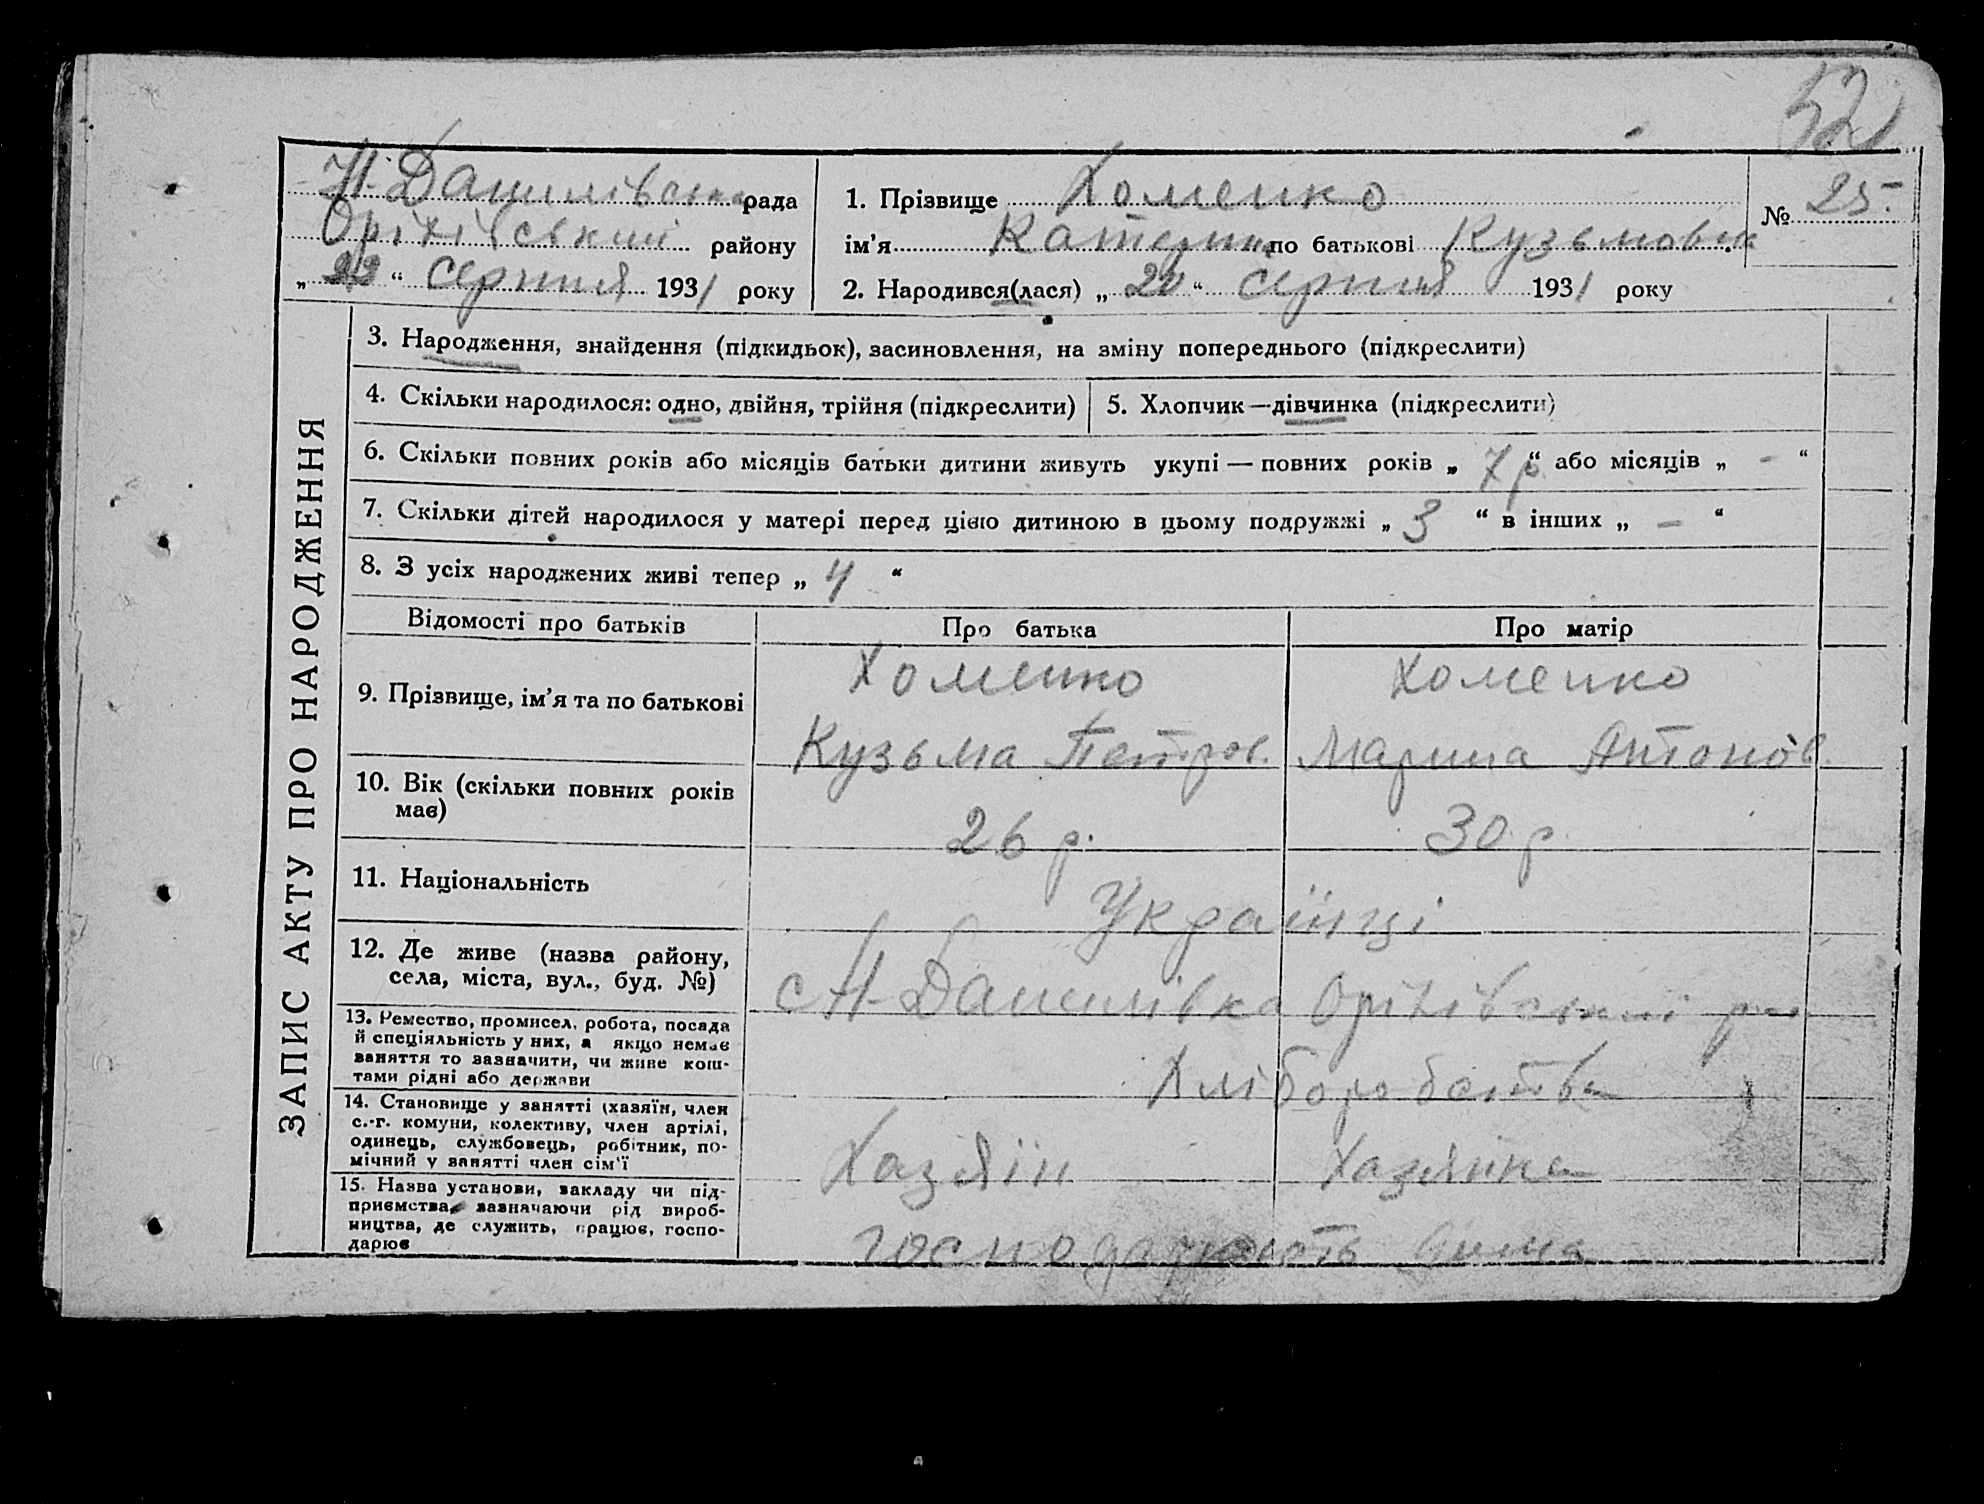 52
Н-Данилівська рада
Оріхівський району
„ 22 “ серпня 1931 року
1. Прізвище Хоменко
ім’я Катерина по батькові Кузьмовна
2. Народився(лася) „ 20 “ серпня 1931 року
№ 25
ЗАПИС АКТУ ПРО НАРОДЖЕННЯ
3. Народження, знайдення (підкидьок), засиновлення, на зміну попереднього (підкреслити)
4. Скільки народилося: одно, двійня, трійня (підкреслити)
5. Хлопчик—дівчинка (підкреслити)
6. Скільки повних років або місяців батьки дитини живуть укупі — повних років „ 7 р “ або місяців „ - “
7. Скільки дітей народилося у матері перед цією дитиною в цьому подружжі „ 3 “ в інших „ - “
8. З усіх народжених живі тепер „ 4 “
Відомості про батьків
Про батька
Про матір
9. Прізвище, ім’я та по батькові
Хоменко
Кузьма Петров.
Хоменко
Марина Антонов.
10. Вік (скільки повних років
має)
26 р.
30 р.
11. Національність
Українці
12. Де живе (назва району,
села, міста, вул., буд. №)
с Н-Данилівка Оріхівський р-н
13. Ремество, промисел, робота, посада
й спеціяльність у них, а якщо немає
заняття то зазначити, чи живе кош-
тами рідні або держави
Хліборобство
14. Становище у занятті (хазяїн, член
с.-г. комуни, колективу, член артілі,
одинець, службовець, робітник, по-
мічний у занятті член сім’ї
Хазяїн
Хазяйка
15. Назва установи, закладу чи під-
приємства, зазначаючи рід вироб-
ництва, де служить, працює, госпо-
дарює
господарюють дома